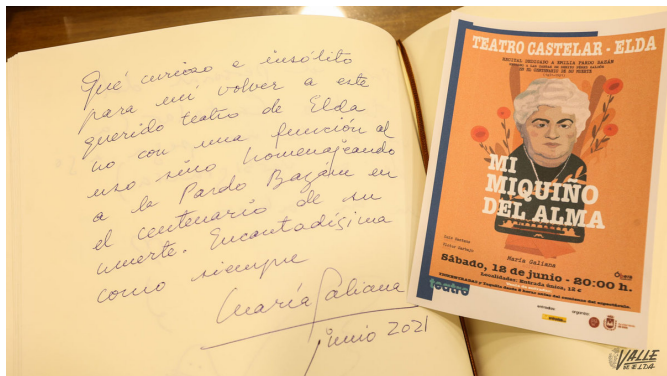 Qué curioso e insólito
para mi volver a este
querido teatro de Elda
no con una función al
uso sino homenajeando
a la Pardo Bazán en
el centenario de su
muerte. Encantadísima
como siempre
María Galiana
junio 2021
TEATRO CASTELAR - ELDA
RECITAL DEDICADO A EMILIA PARDO BAZÁN
EN EL CENTENARIO DE SU MUERTE
MI
MIQUIÑO
DEL ALMA
María Galiana
Sábado, 12 de junio - 20:00 h.
Localidades: Entrada única, 12 €
teatro
VALLE
DE ELDA